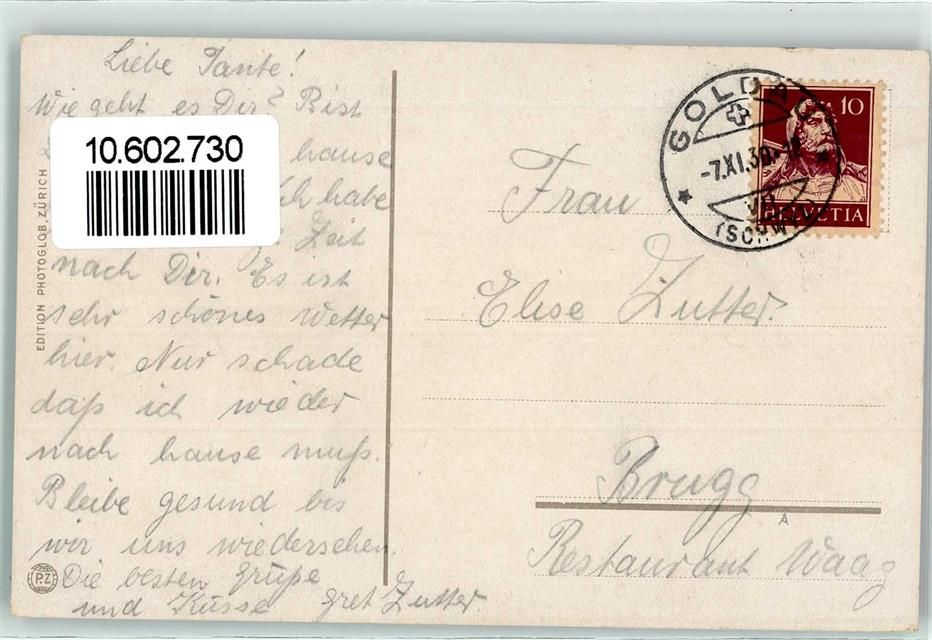 Liebe Tante!
Wie geht es Dir? Bist
hause
Ich habe
Zeit
nach Dir. Es ist
sehr schönes Wetter
hier. Nur schade
daß ich wieder
nach hause muß.
Bleibe gesund bis
wir uns wiedersehen.
Die besten Grüße
und Küsse Gret Zutter.
10.602.730
EDITION PHOTOGLOB, ZÜRICH
P.Z
GOLDAU
-7.XI.30.
(SCHWYZ)
10
HELVETIA
Frau
Elise Zutter.
Brugg
A
Restaurant Waag